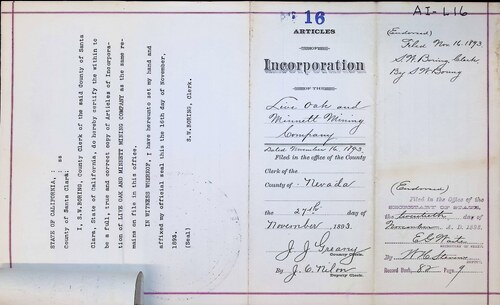 STATE OF CALIFORNIA, : ss
County of Santa Clara:
I, S.W.BORING, County Clerk of the said County of Santa
Clara, State of California, do hereby certify the within to
be a full, true and correct copy of Articles of Incorpora-
tion of LIVE OAK AND MINNETT MINING COMPANY as the same re-
mains on file in this office.
IN WITNESS WHEREOF, I have hereunto set my hand and
affixed my official seal this the 16th day of November,
1893.
S.W.BORING, Clerk.
(Seal)
16
ARTICLES
OF
Incorporation
OF THE
Live Oak and
Minnett Mining
Company
Dated November 16, 1893,
Filed in the office of the County
Clerk of the
County of Nevada
the 27th day of
November 1893.
J. J. Greany
County Clerk.
By J. C. Nilon
Deputy Clerk.
AI-L16
(Endorsed)
Filed Nov. 16. 1893
S. W. Boring Clerk
By S W Boring
(Endorsed)
Filed in the Office of the
SECRETARY OF STATE,
the twentieth day of
November A. D. 1893.
E. G. Waite
SECRETARY OF STATE
By
Record Book 82 Page 9